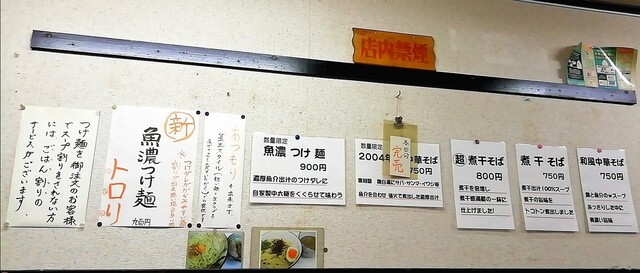 店内禁煙
つけ麺を御注文のお客様
でスープ割りをされない方
には、ごはん割りの
サービスがございます!
新
魚濃つけ麺
トロリ
900円
あつもり
数量限定
魚濃 つけ 麺
900円
濃厚魚介出汁のつけダレに
自家製中太麺をくぐらせて味わう
数量限定
2004
華そば
750円
魚介を合わせ 強火で煮出した濃厚出汁
本日
完売
超 煮干そば
800円
煮干を倍増し
煮干感満載の一杯に
仕上げました!
煮 干 そば
750円
煮干出汁100%スープ
煮干の旨味を
トコトン煮出しました
和風中華そば
750円
鶏と魚介のwスープ
あっさりした中に
奥深い旨味